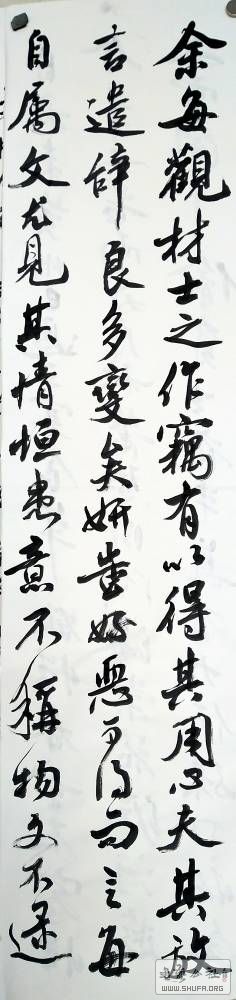 余每觀材士之作竊有以得其用心夫其放
言遣辞良多變矣妍蚩好惡可得而言每
自属文尤見其情恒患意不稱物文不逮
WWW.SHUFA.ORG